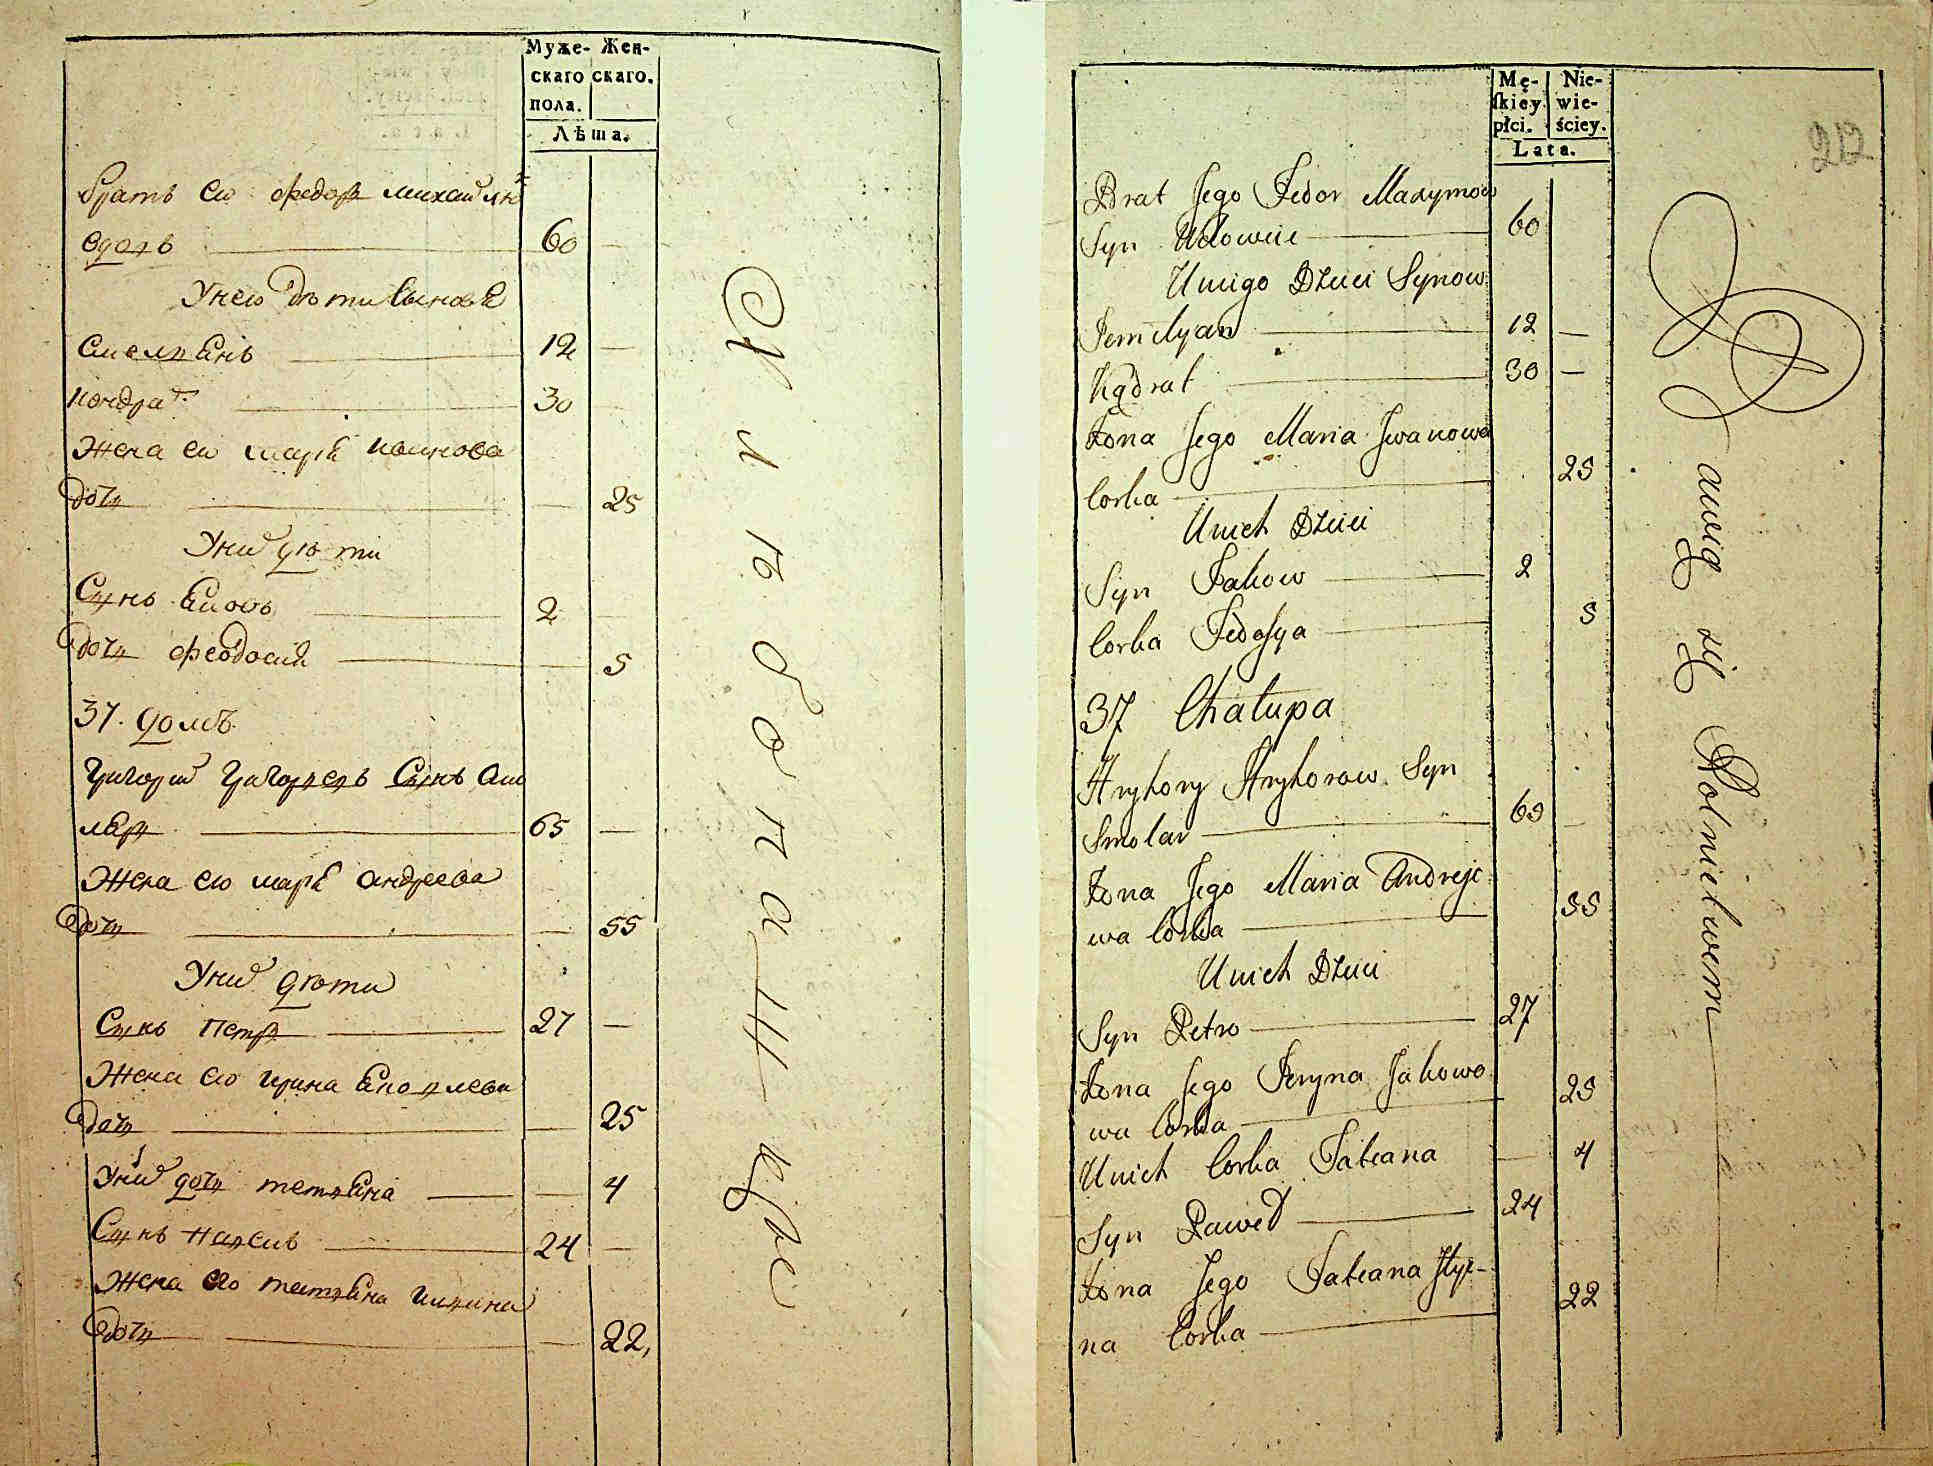 Муже- Жен-
скаго скаго.
пола.
Лѣта.
братъ его федоръ михайлов
вдовъ 60 —
У него дѣти Сыновя
емелянъ 12 —
Кондратъ 30
Жена его маря иванова
дочь — 25
У них дѣти
Сынъ Яковъ 2
дочь феодосия — 5
37. домъ
Григорий Григорьевъ Сынъ смо
ляръ 65 —
Жена его маря андреева
дочь — 55
У них дѣти
Сынъ петръ 27 —
Жена его ирина Яковлева
дочь — 25
У них дочь татяна — 4
Сынъ павелъ 24 —
Жена его татяна
дочь — 22,
Mę- Nie-
skiey wie-
płci. ściey.
Lata.
212
Brat Jego Fedor Maxymow
Syn Wdowiec 60
U niego Dzieci Synow
Jemilyan 12 —
Kądrat 30 —
Żona Jego Maria Jwanowa
Corka 25
U nich Dzieci
Syn Jakow 2
Corka Fedosya 5
37 Chałupa
Hryhory Hryhorow Syn
Smolar 65 —
Żona Jego Maria Andreje
wa Corka 55
U nich Dzieci
Syn Petro 27
Żona Jego Jeryna Jakowo
wa Corka 25
U nich Corka Tatiana — 4
Syn Paweł 24
Żona Jego Tatiana
na Corka 22
Bawią się Rolnictwem